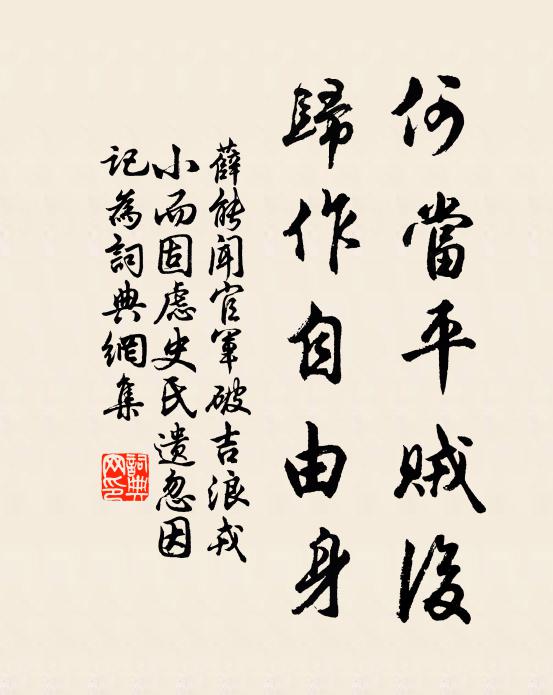 何當平賊後
歸作自由身
薛能聞官軍破吉浪戎
小而固慮史氏遺忽因
記為詞典網集
詞典
网印